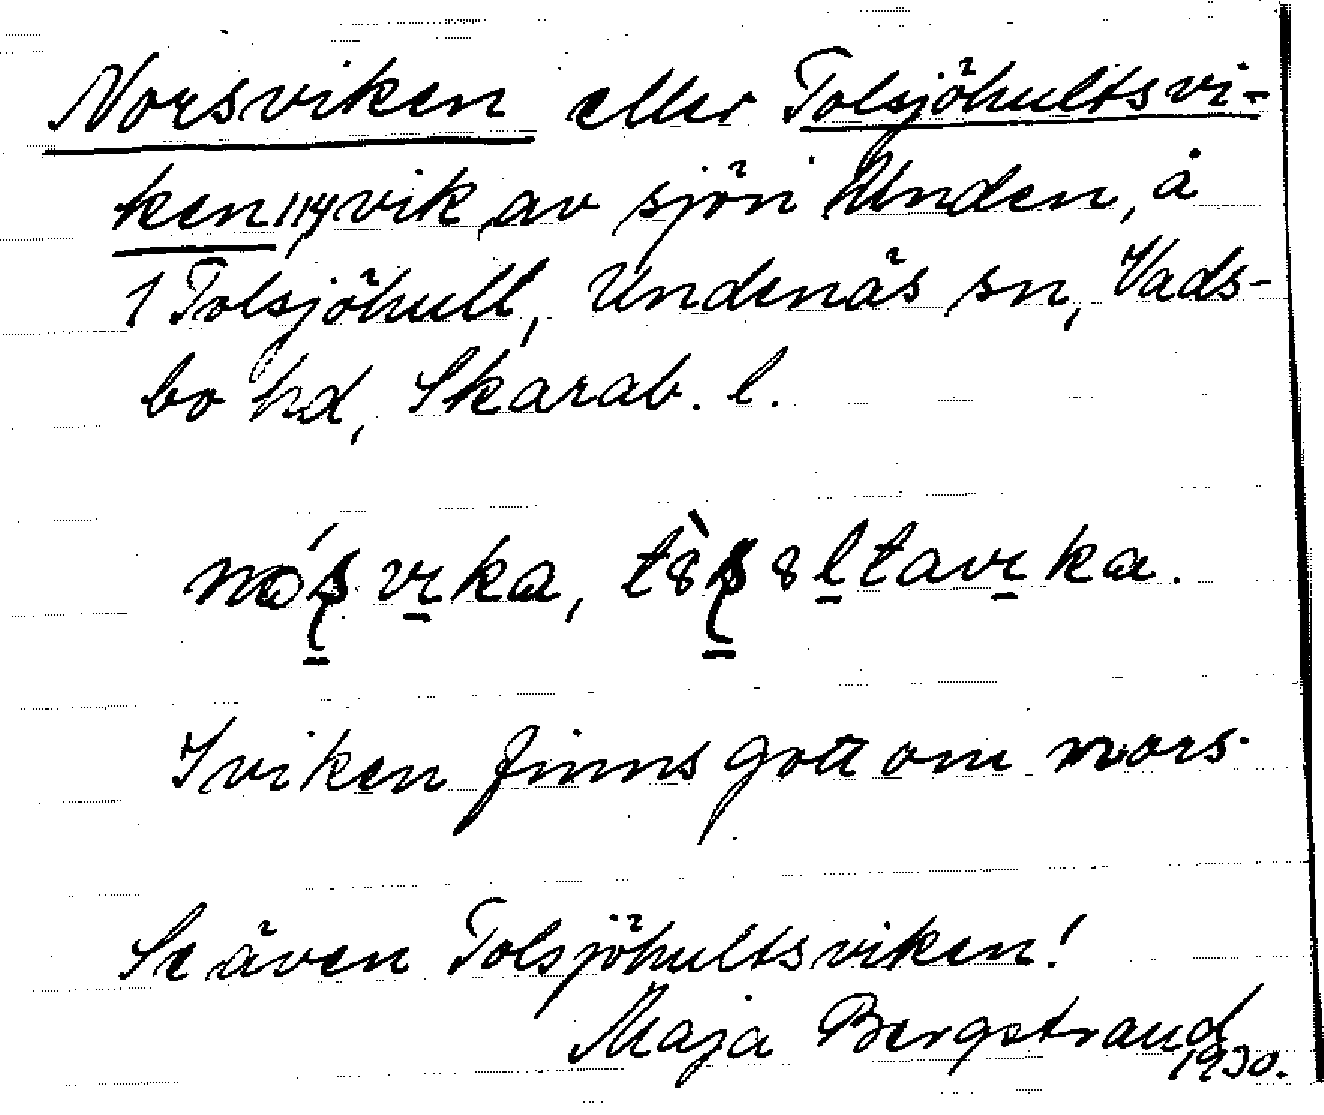 Norsviken eller Tolsjöhultsvi-
ken, vik av sjön Unden, å
1 Tolsjöhult, Undenäs sn, Vads-
bo hd, Skarab. l.
I viken finns gott om nors.
Se även Tolsjöhultsviken!
Maja Bergstrand
1930.